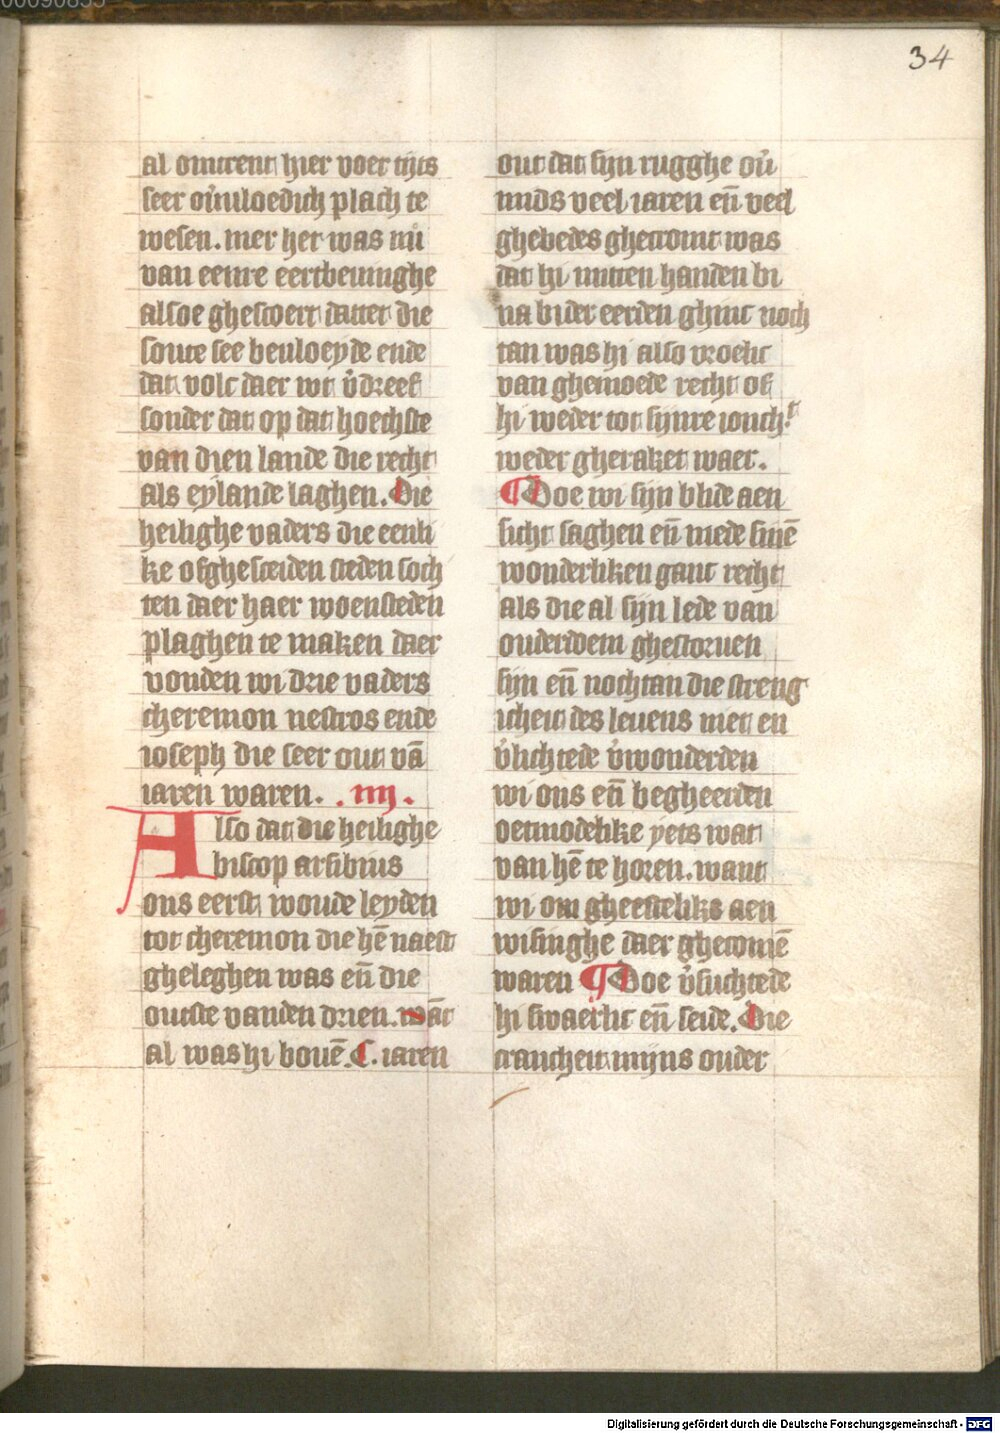 34
al omtrent hier voer tijts
seer ov̓uloedich plach te
wesen. mer het was nu
van eenre eertbeuinghe
alsoe ghestoert datter die
soute see beuloeyde ende
dat volc daer wt v̓dreef
sonder dat op dat hoechste
van dien lande die recht
als eylande laghen. Die
heilighe vaders die eenli
ke ofghesceiden steden soch
ten daer haer woensteden
plaghen te maken daer
vonden wi drie vaders
cheremon nestros ende
ioseph die seer out vā
iaren waren. .iiij.
Also dat die heilighe
biscop arsibius
ons eerst woude leyden
tot cheremon die hē naest
gheleghen was eñ die
outste vanden drien. wāt
al was hi bouē .C. iaren
out dat sijn rugghe ov̓
mids veel iaren eñ veel
ghebedes ghecromt was
dat hi mitten handen bi
na bider eerden ghinc noch
tan was hi also vroelic
van ghemoede recht of
hi weder tot sijnre ionch.t
weder gheraket waer.
¶ Doe wi sijn blide aen
sicht saghen eñ mede sinē
wonderliken ganc recht
als die al sijn lede van
ouderdoem ghestoruen
sijn eñ nochtan die streng
icheit des leuens niet en
v̓lichtede v̓wonderden
wi ons eñ begheerden
oetmodelike yets wat
van hē te horen. want
wi om gheestelike aen
wisinghe daer ghecomē
waren ¶ Doe v̓suchtede
hi swaerlic eñ seide. Die
crancheit mijns ouder
Digitalisierung gefördert durch die Deutsche Forschungsgemeinschaft - DFG